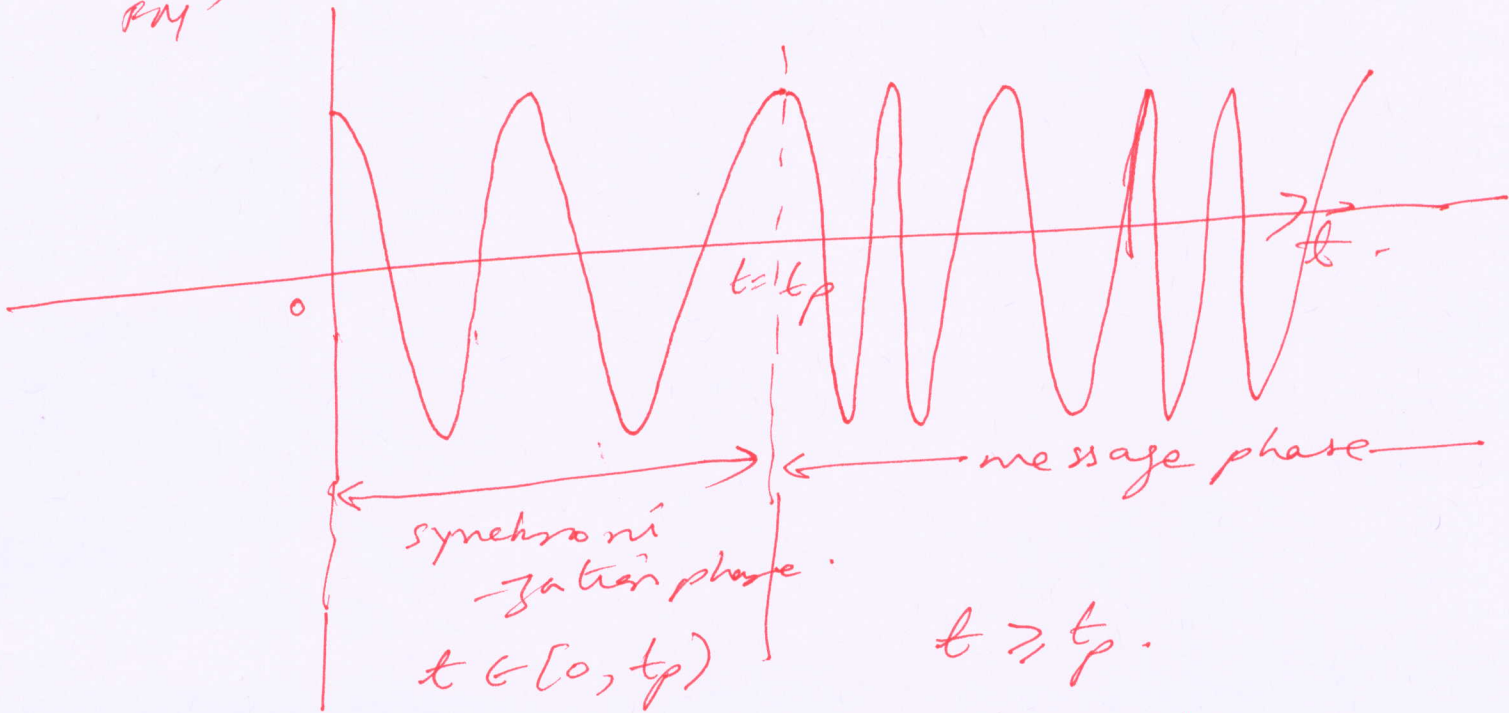 0
t = t_p
t.
message phase
synchroni
-zation phase.
t ∈ [0, t_p)
t ≥ t_p.